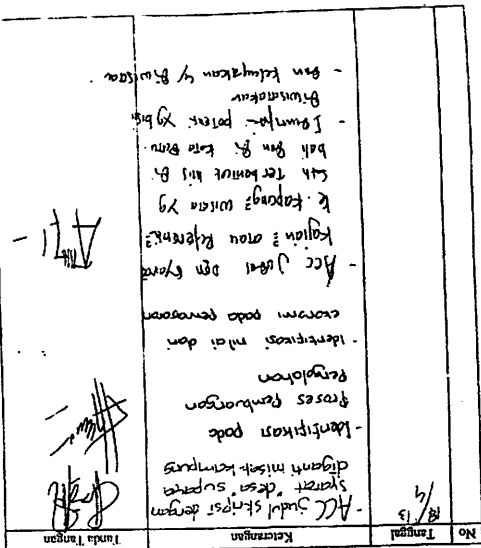 No Tanggal Keterangan Tanda Tangan
- ACC judul skripsi dengan
syarat "desa" supaya
diganti misal: kampung
- Identifikasi pada
Proses Pembuangan
Pengolahan
- Identifikasi nilai dan
ekonomi pada pemasaran
- ACC Judul Dgn syarat
Kajian² atau Referensi²
ke kapung² wisata yg
sdh Terbentuk Di
bali Dan Di kota Batu.
- potensi yg bisa
Diwisatakan
- Dan kelayakan u/ Di wisata